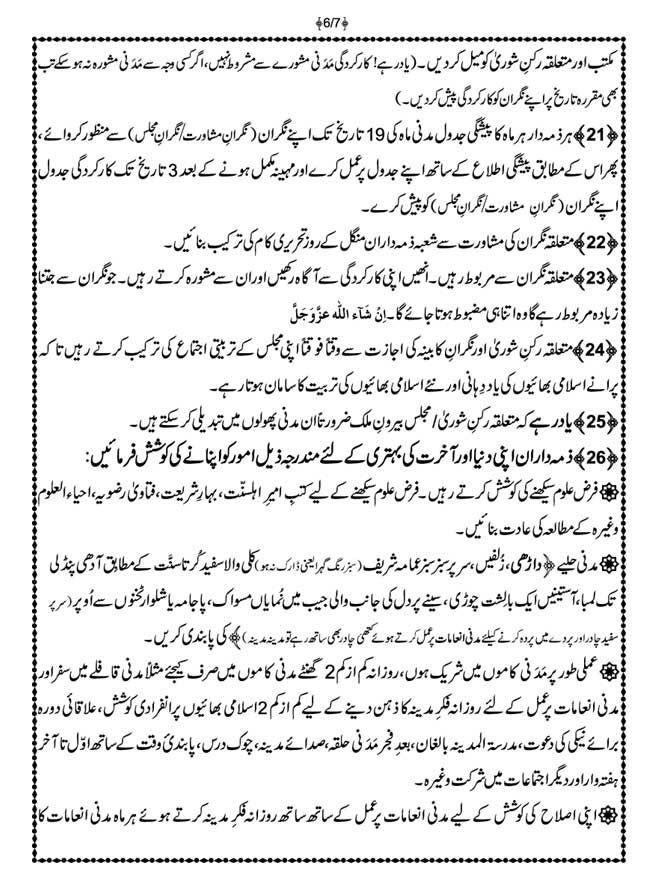 ﴿6/7﴾
مکتب اور متعلقہ رکنِ شوریٰ کو میل کر دیں ۔ (یاد رہے! کارکردگی مَدَنی مشورے سے مشروط نہیں، اگر کسی وجہ سے مَدَنی مشورہ نہ ہو سکے تب
بھی مقررہ تاریخ پر اپنے نگران کو کارکردگی پیش کر دیں ۔)
﴿21﴾ ہر ذمہ دار ہر ماہ کا پیشگی جدول مدنی ماہ کی 19 تاریخ تک اپنے نگران (نگرانِ مشاورت/نگرانِ مجلس) سے منظور کروائے،
پھر اس کے مطابق پیشگی اطلاع کے ساتھ اپنے جدول پر عمل کرے اور مہینہ مکمل ہونے کے بعد 3 تاریخ تک کارکردگی جدول
اپنے نگران (نگرانِ مشاورت/نگرانِ مجلس) کو پیش کرے۔
﴿22﴾ متعلقہ نگران کی مشاورت سے شعبہ ذمہ داران منگل کے روز تحریری کام کی ترکیب بنائیں۔
﴿23﴾ متعلقہ نگران سے مربوط رہیں۔ انھیں اپنی کارکردگی سے آگاہ رکھیں اور ان سے مشورہ کرتے رہیں۔ جو نگران سے جتنا
زیادہ مربوط رہے گا وہ اتنا ہی مضبوط ہوتا جائے گا۔ اِنْ شَآءَ اللہ عَزَّوَجَلَّ
﴿24﴾ متعلقہ رکنِ شوریٰ اور نگرانِ کابینہ کی اجازت سے وقتاً فوقتاً اپنی مجلس کے تربیتی اجتماع کی ترکیب کرتے رہیں تاکہ
پرانے اسلامی بھائیوں کی یاد دِہانی اور نئے اسلامی بھائیوں کی تربیت کا سامان ہوتا رہے۔
﴿25﴾ یاد رہے کہ متعلقہ رکنِ شوریٰ/مجلس بیرونِ ملک ضرورتاً ان مدنی پھولوں میں تبدیلی کر سکتے ہیں۔
﴿26﴾ ذمہ داران اپنی دنیا اور آخرت کی بہتری کے لئے مندرجہ ذیل امور کو اپنانے کی کوشش فرمائیں:
فرض علوم سیکھنے کی کوشش کرتے رہیں۔ فرض علوم سیکھنے کے لیے کتبِ امیرِ اہلسنّت، بہارِ شریعت، فتاویٰ رضویہ، احیاء العلوم
وغیرہ کے مطالعہ کی عادت بنائیں۔
مدنی حلیے ﴿داڑھی، زُلفیں، سر پر سبز سبز عمامہ شریف (سبز رنگ گہرا یعنی ڈارک نہ ہو) کلی والا سفید کُرتا سنَّت کے مطابق آدھی پنڈلی
تک لمبا، آستینیں ایک بالِشت چوڑی، سینے پر دل کی جانب والی جیب میں نُمایاں مسواک، پاجامہ یا شلوار ٹخنوں سے اُوپر (سر پر
سفید چادر اور پردے میں پردہ کرنے کیلئے مدنی انعامات پر عمل کرتے ہوئے کتھئی چادر بھی ساتھ رہے تو مدینہ مدینہ)﴾ کی پابندی کریں۔
عملی طور پر مَدَنی کاموں میں شریک ہوں، روزانہ کم از کم 2 گھنٹے مدنی کاموں میں صرف کیجئے مثلاً مدنی قافلے میں سفر اور
مدنی انعامات پر عمل کے لئے روزانہ فکرِ مدینہ کا ذہن دینے کے لیے کم از کم 2 اسلامی بھائیوں پر انفرادی کوشش، علاقائی دورہ
برائے نیکی کی دعوت، مدرسۃ المدینہ بالغان، بعدِ فجر مَدَنی حلقہ، صدائے مدینہ، چوک درس، پابندیٔ وقت کے ساتھ اوّل تا آخر
ہفتہ وار اور دیگر اجتماعات میں شرکت وغیرہ۔
اپنی اصلاح کی کوشش کے لیے مدنی انعامات پر عمل کے ساتھ ساتھ روزانہ فکرِ مدینہ کرتے ہوئے ہر ماہ مدنی انعامات کا